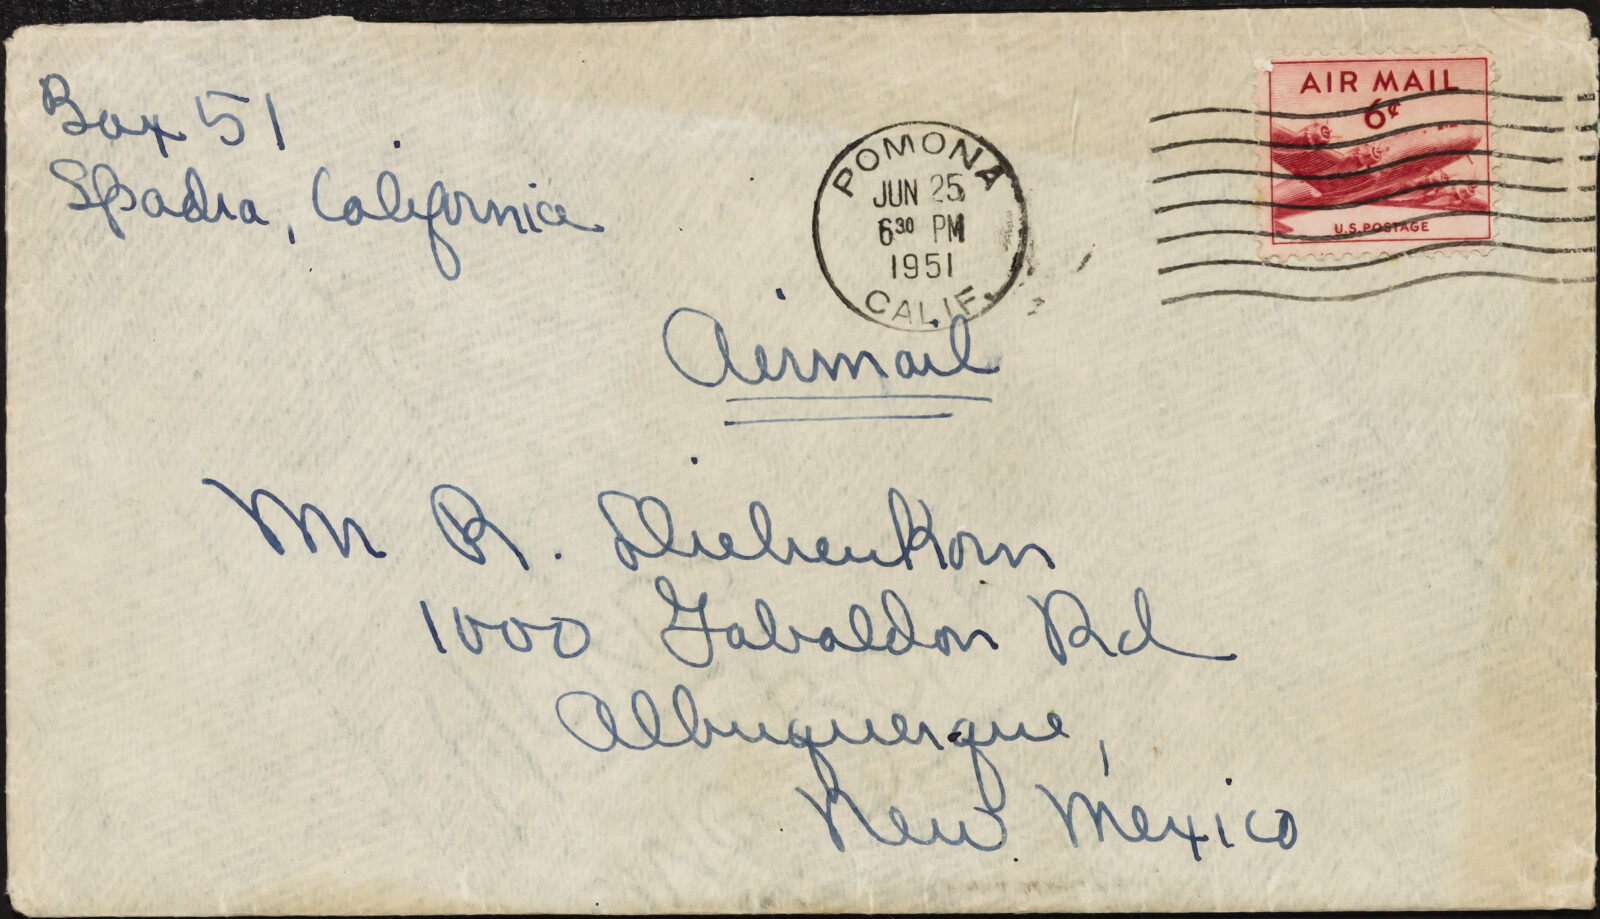 Box 51
Spadra, California
POMONA
JUN 25
6 30 PM
1951
CALIF.
AIR MAIL
6¢
U.S. POSTAGE
Airmail
Mr R. Diebenkorn
1000 Gabaldon Rd
Albuquerque,
New Mexico